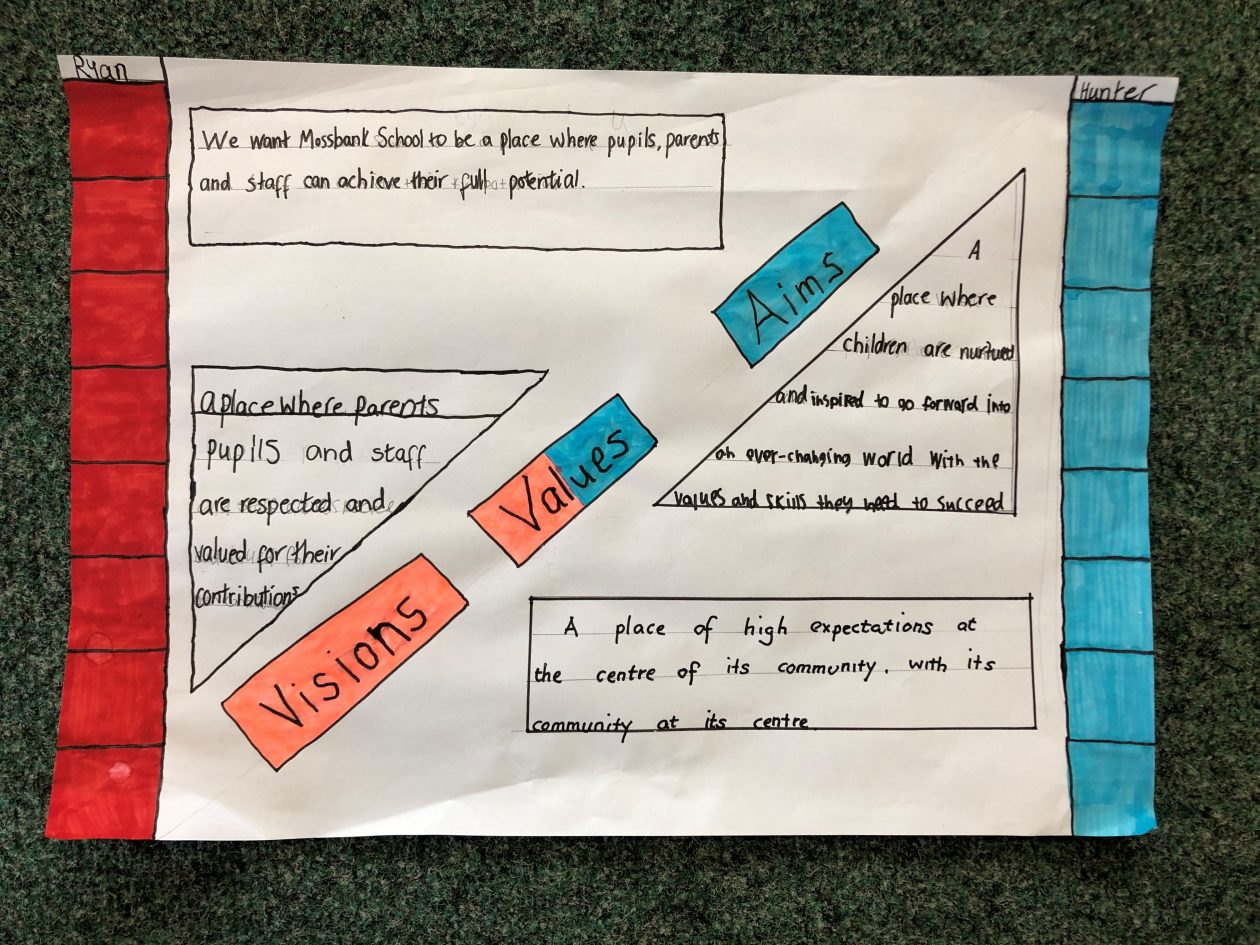 Ryan
Hunter
We want Mossbank School to be a place where pupils, parents
and staff can achieve their full potential.
Aims
A
place where
children are nurtued
and inspired to go forward into
an ever-changing world with the
values and skills they need to succeed
a place where parents
pupils and staff
are respected and
valued for their
contributions
Values
Visions
A place of high expectations at
the centre of its community, with its
community at its centre